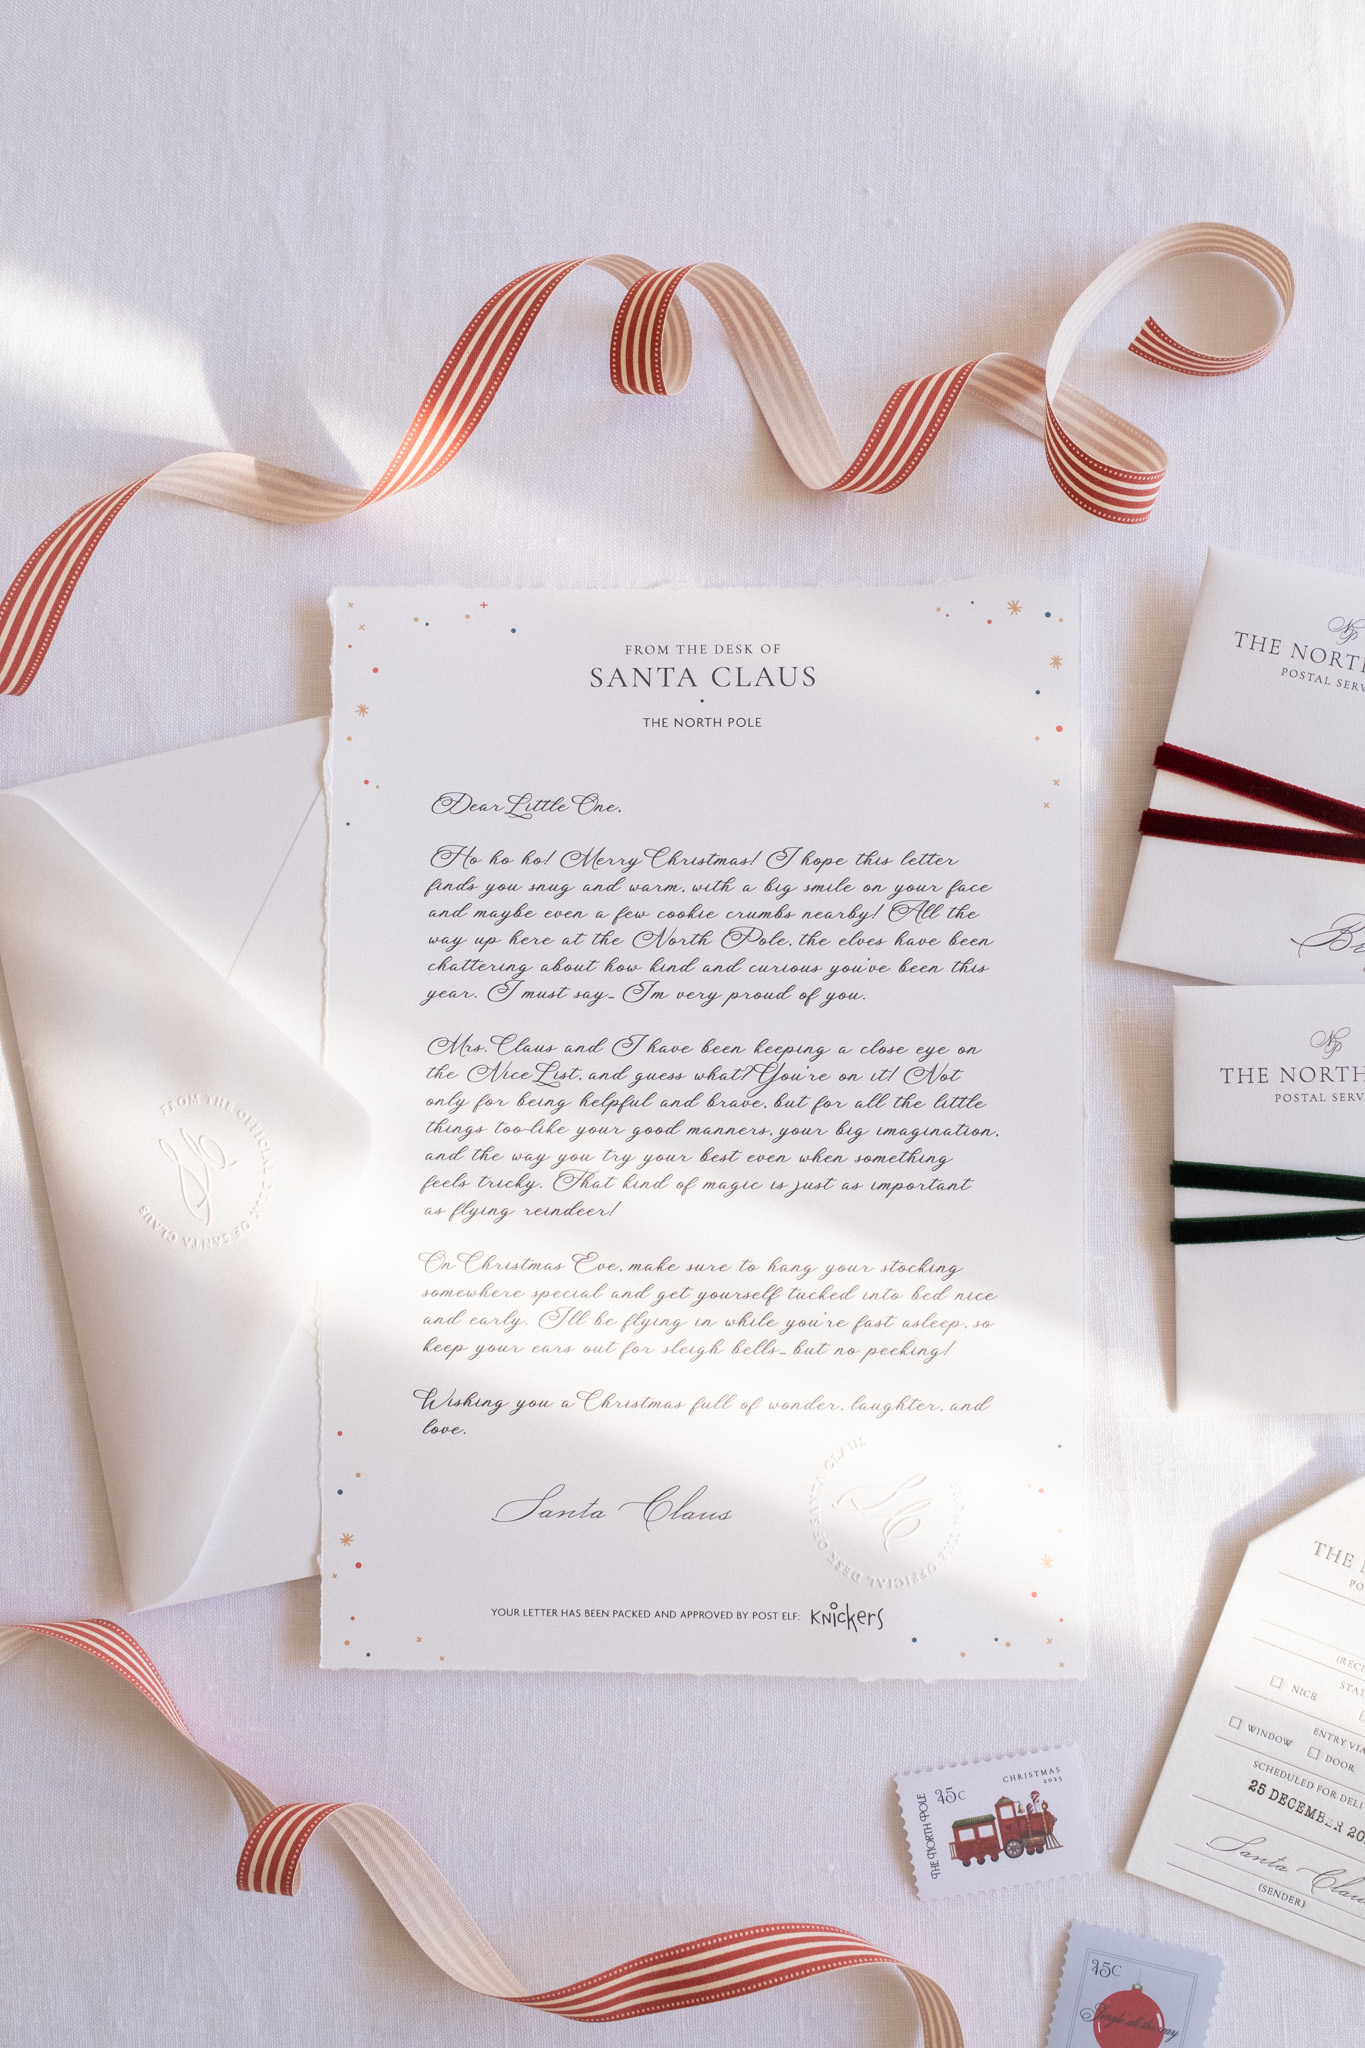 FROM THE DESK OF
SANTA CLAUS
THE NORTH POLE
Dear Little One,
Ho ho ho! Merry Christmas! I hope this letter
finds you snug and warm, with a big smile on your face
and maybe even a few cookie crumbs nearby! All the
way up here at the North Pole, the elves have been
chattering about how kind and curious you've been this
year. I must say… I'm very proud of you.
Mrs. Claus and I have been keeping a close eye on
the Nice List, and guess what? You're on it! Not
only for being helpful and brave, but for all the little
things too-like your good manners, your big imagination,
and the way you try your best even when something
feels tricky. That kind of magic is just as important
as flying reindeer!
On Christmas Eve, make sure to hang your stocking
somewhere special and get yourself tucked into bed nice
and early. I'll be flying in while you're fast asleep, so
keep your ears out for sleigh bells… but no peeking!
Wishing you a Christmas full of wonder, laughter, and
love,
Santa Claus
FROM THE OFFICIAL DESK OF SANTA CLAUS
YOUR LETTER HAS BEEN PACKED AND APPROVED BY POST ELF: KNickers
FROM THE OFFICIAL DESK OF SANTA CLAUS
NP
THE NORTH
POSTAL SERV
NP
THE NORTH
POSTAL SERV
THE
NICE
ENTRY VIA
WINDOW
DOOR
SCHEDULED FOR DELI
25 DECEMBER 20
Santa Clau
(SENDER)
THE NORTH POLE
45c
CHRISTMAS
2025
45c
Jingle all the way